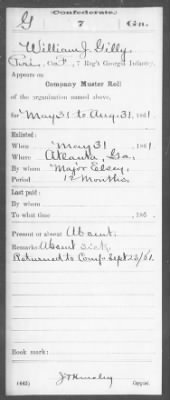 Confederate.
G 7 Ga.
William J. Gilly
Pvt., Co. F, 7 Reg't Georgia Infantry.
Appears on
Company Muster Roll
of the organization named above,
for May 31 to Aug. 31, 1861.
Enlisted:
When May 31, 1861.
Where Atlanta, Ga.
By whom Major
Period 12 Months.
Last paid:
By whom
To what time , 186 .
Present or absent Absent.
Remarks: Absent sick.
Returned to Camp Sept 23/61.
Book mark:
(642)
Copyist.